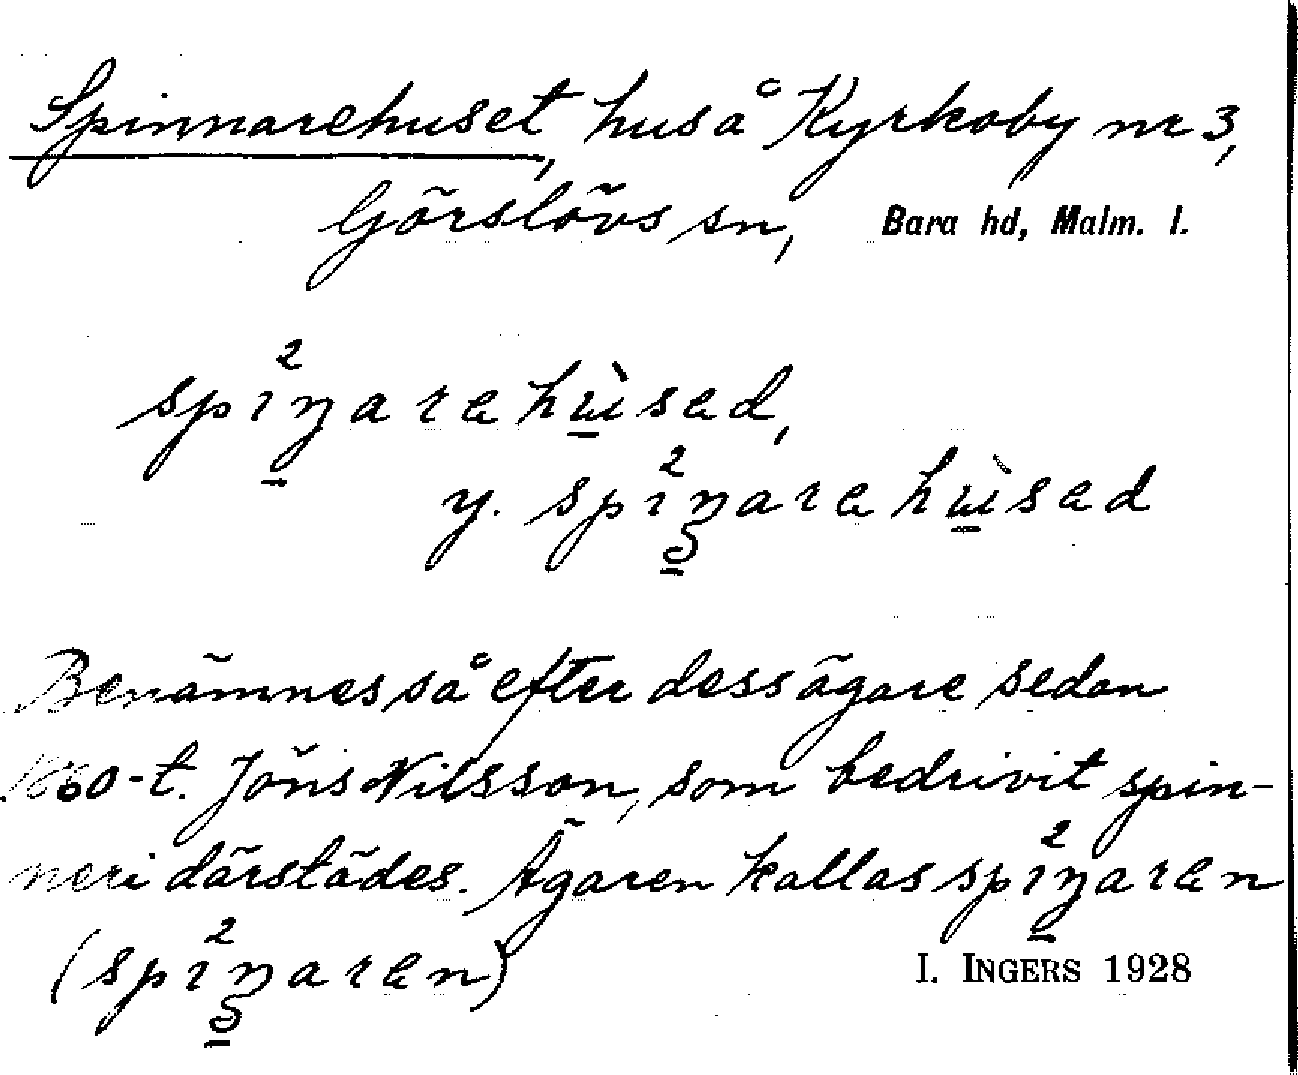 Spinnarehuset, hus å Kyrkoby nr 3,
Görslövs sn, Bara hd, Malm. l.
spi²ŋarehùsed,
y. spi²narehùsed
Benämnes så efter dess ägare sedan
1860-t. Jöns Nilsson, som bedrivit spin-
neri därstädes. Ägaren kallas spi²ŋaren
(spi²naren)
I. INGERS 1928